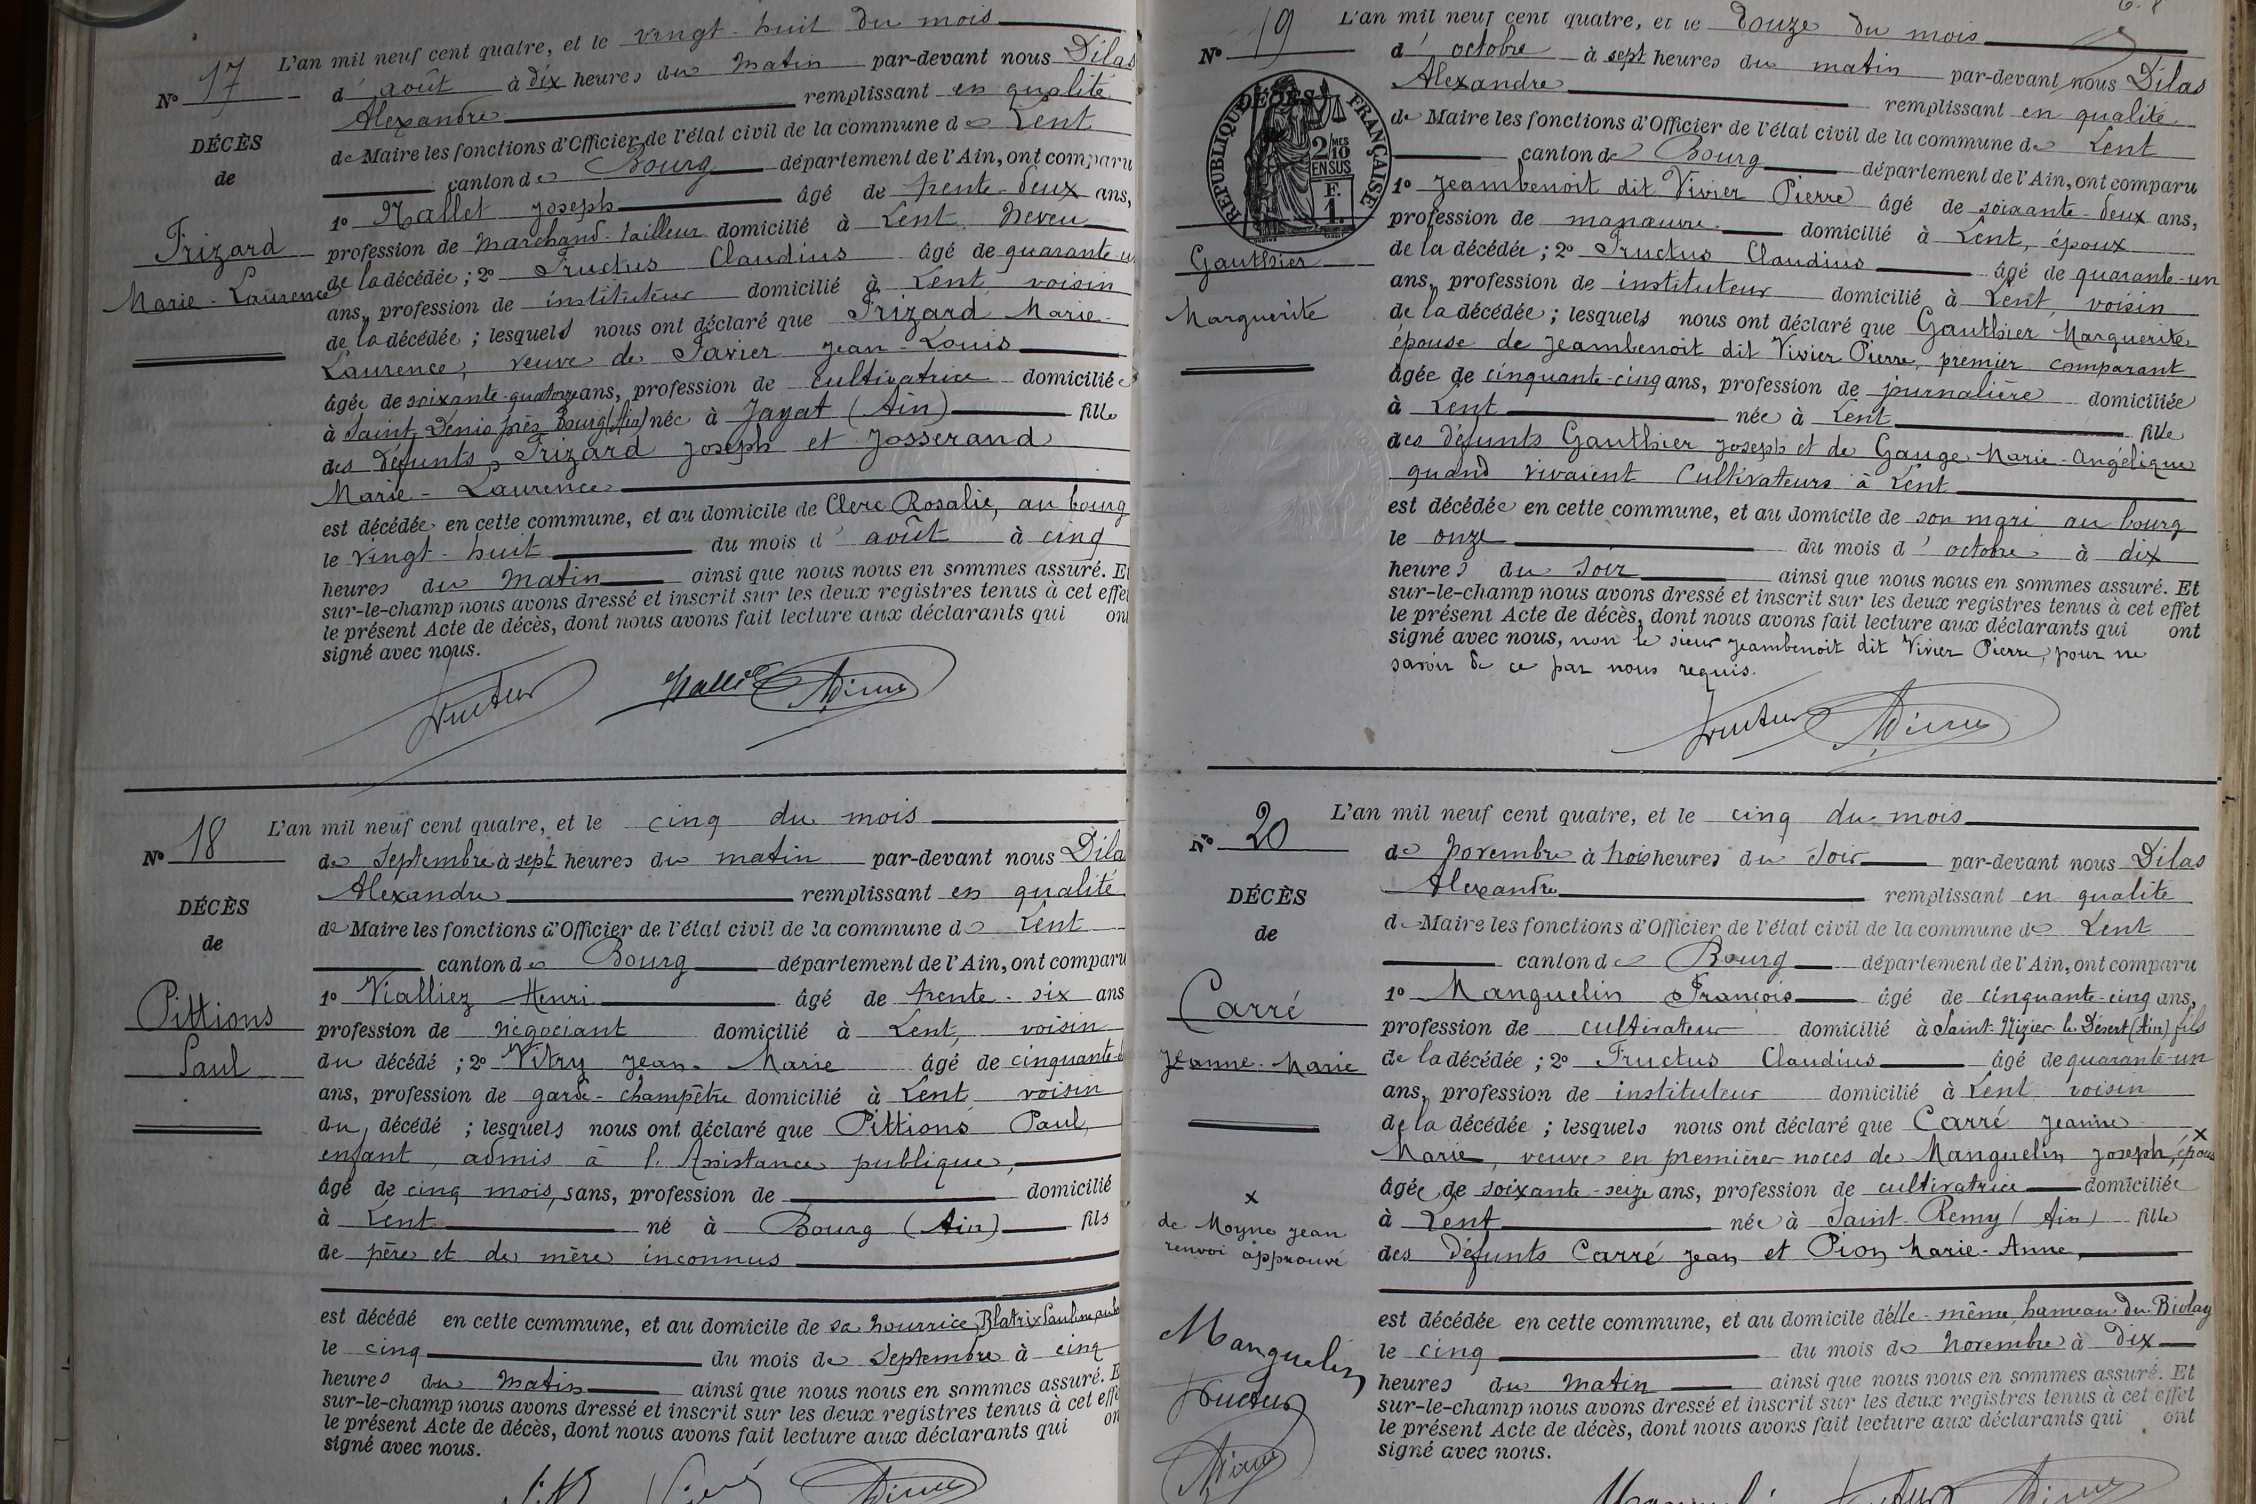 N° 17
DÉCÈS
de
Frizard
Marie-Laurence
L'an mil neuf cent quatre, et le vingt-huit du mois
d'août à dix heures du matin par-devant nous Dilas
Alexandre remplissant en qualité
de Maire les fonctions d'Officier de l'état civil de la commune de Lent
canton de Bourg département de l'Ain, ont comparu
1° Mallet Joseph âgé de trente-deux ans,
profession de marchand-tailleur domicilié à Lent, neveu
de la décédée ; 2° Fructus Claudius âgé de quarante-u
ans, profession de instituteur domicilié à Lent, voisin
de la décédée ; lesquels nous ont déclaré que Frizard Marie-
Laurence, veuve de Favier Jean-Louis
âgée de soixante-quatorze ans, profession de cultivatrice domiciliée
à Saint Denis près Bourg (Ain) née à Jayat (Ain) fille
des défunts Frizard Joseph et Josserand
Marie-Laurence
est décédée en cette commune, et au domicile de Clerc Rosalie, au bourg
le vingt-huit du mois d'août à cinq
heures du matin ainsi que nous nous en sommes assuré. Et
sur-le-champ nous avons dressé et inscrit sur les deux registres tenus à cet effet
le présent Acte de décès, dont nous avons fait lecture aux déclarants qui ont
signé avec nous.
Fructus Mallet ADilas
N° 18
DÉCÈS
de
Pittions
Paul
L'an mil neuf cent quatre, et le cinq du mois
de Septembre à sept heures du matin par-devant nous Dila
Alexandre remplissant en qualité
de Maire les fonctions d'Officier de l'état civil de la commune de Lent
canton de Bourg département de l'Ain, ont comparu
1° Vialliez Henri âgé de trente-six ans
profession de négociant domicilié à Lent, voisin
du décédé ; 2° Vitry Jean-Marie âgé de cinquante-
ans, profession de garde-champêtre domicilié à Lent, voisin
du décédé ; lesquels nous ont déclaré que Pittions Paul,
enfant, admis à l'Assistance publique,
âgé de cinq mois, sans, profession de domicilié
à Lent né à Bourg (Ain) fils
de père et de mère inconnus
est décédé en cette commune, et au domicile de sa nourrice, Blatrix Pauline, au
le cinq du mois de Septembre à cinq
heures du matin ainsi que nous nous en sommes assuré. E
sur-le-champ nous avons dressé et inscrit sur les deux registres tenus à cet effe
le présent Acte de décès, dont nous avons fait lecture aux déclarants qui on
signé avec nous.
N° 19
DÉCÈS
RÉPUBLIQUE FRANÇAISE
2/10 MES
EN SUS
F.
1.
Gauthier
Marguerite
L'an mil neuf cent quatre, et le douze du mois
d'octobre à sept heures du matin par-devant nous Dilas
Alexandre remplissant en qualité
de Maire les fonctions d'Officier de l'état civil de la commune de Lent
canton de Bourg département de l'Ain, ont comparu
1° Jeambenoit dit Vivier Pierre âgé de soixante-deux ans,
profession de manœuvre domicilié à Lent, époux
de la décédée ; 2° Fructus Claudius âgé de quarante-un
ans, profession de instituteur domicilié à Lent, voisin
de la décédée ; lesquels nous ont déclaré que Gauthier Marguerite
épouse de Jeambenoit dit Vivier Pierre, premier comparant
âgée de cinquante-cinq ans, profession de journalière domiciliée
à Lent née à Lent fille
des défunts Gauthier Joseph et de Gauge Marie-Angélique
quand vivaient Cultivateurs à Lent
est décédée en cette commune, et au domicile de son mari au bourg
le onze du mois d'octobre à dix
heures du soir ainsi que nous nous en sommes assuré. Et
sur-le-champ nous avons dressé et inscrit sur les deux registres tenus à cet effet
le présent Acte de décès, dont nous avons fait lecture aux déclarants qui ont
signé avec nous, non le sieur Jeambenoit dit Vivier Pierre, pour ne
savoir de ce par nous requis.
Fructus ADilas
N° 20
DÉCÈS
de
Carré
Jeanne-Marie
x
de Moyne Jean
renvoi approuvé
Manguelin
Fructus
ADilas
L'an mil neuf cent quatre, et le cinq du mois
de novembre à trois heures du soir par-devant nous Dilas
Alexandre remplissant en qualité
de Maire les fonctions d'Officier de l'état civil de la commune de Lent
canton de Bourg département de l'Ain, ont comparu
1° Manguelin François âgé de cinquante-cinq ans,
profession de cultivateur domicilié à Saint-Nizier le Désert (Ain) fils
de la décédée ; 2° Fructus Claudius âgé de quarante-un
ans, profession de instituteur domicilié à Lent voisin
de la décédée ; lesquels nous ont déclaré que Carré Jeanne
Marie, veuve en premières noces de Manguelin Joseph, x épouse
âgée de soixante-seize ans, profession de cultivatrice domiciliée
à Lent née à Saint-Remy (Ain) fille
des défunts Carré Jean et Pion Marie-Anne
est décédée en cette commune, et au domicile d'elle-même, hameau du Biolay
le cinq du mois de novembre à dix
heures du matin ainsi que nous nous en sommes assuré. Et
sur-le-champ nous avons dressé et inscrit sur les deux registres tenus à cet effet
le présent Acte de décès, dont nous avons fait lecture aux déclarants qui ont
signé avec nous.